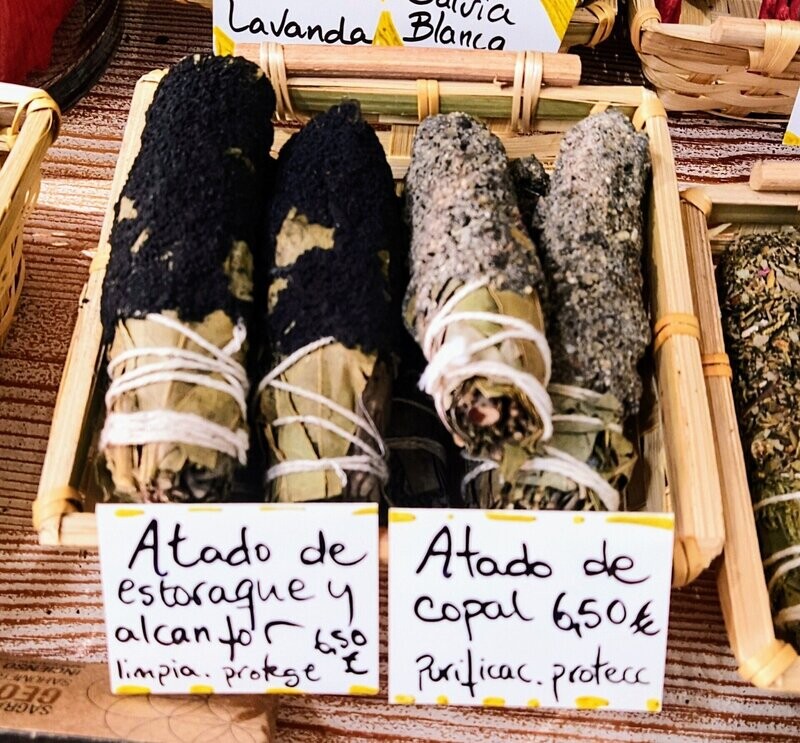 Lavanda
Salvia
Blanca
Atado de
estoraque y
alcanfor 6,50
limpia. protege €
Atado de
copal 6,50€
Purificac. protecc
SAGR
INCIENSO
GEO